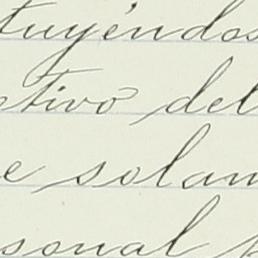 tuyéndos
ctivo del
e solam
sonal